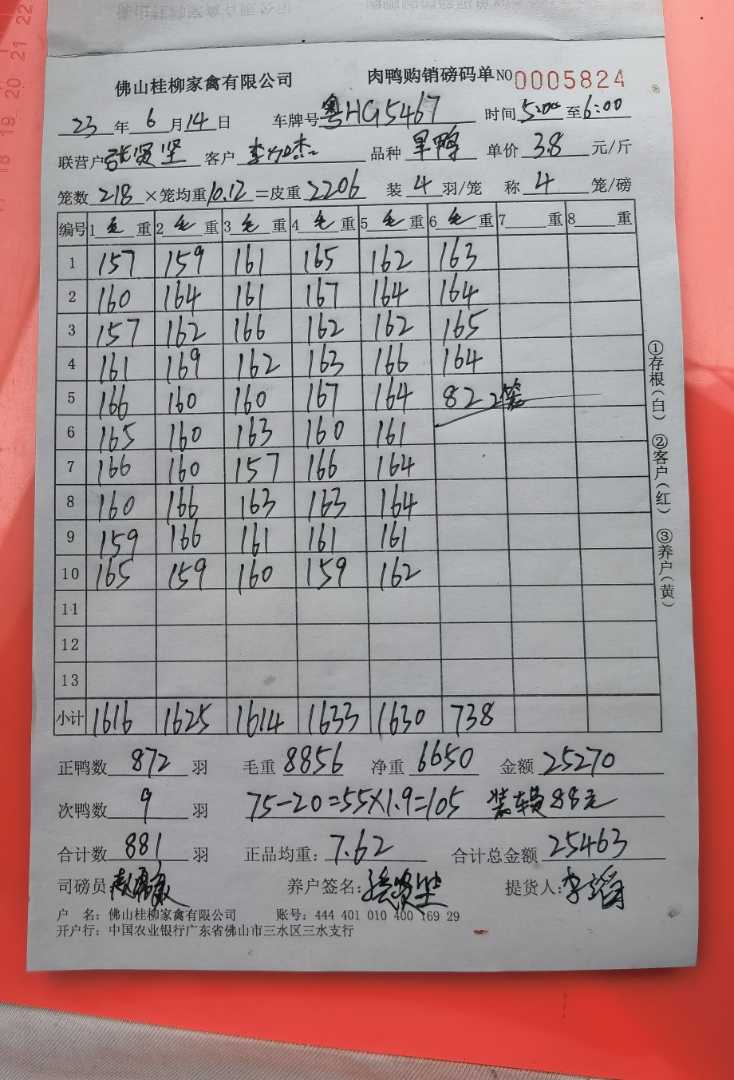 佛山桂柳家禽有限公司 肉鸭购销磅码单 NO 0005824
23 年 6 月 14 日 车牌号 粤HG5467 时间 5:00 至 6:00
联营户 张贤坚 客户 品种 旱鸭 单价 3.8 元/斤
笼数 218 ×笼均重 10.12 =皮重 2206 装 4 羽/笼 称 4 笼/磅
编号 1 毛 重 2 毛 重 3 毛 重 4 毛 重 5 毛 重 6 毛 重 7 重 8 重
1 157 159 161 165 162 163
2 160 164 161 167 164 164
3 157 162 166 162 162 165
4 161 169 162 163 166 164
5 166 160 160 167 164 82 2笼
6 165 160 163 160 161
7 166 160 157 166 164
8 160 166 163 163 164
9 159 166 161 161 161
10 165 159 160 159 162
11
12
13
小计 1616 1625 1614 1633 1630 738
正鸭数 872 羽 毛重 8856 净重 6650 金额 25270
次鸭数 9 羽 75-20=55×1.9=105 装车费88元
合计数 881 羽 正品均重: 7.62 合计总金额 25463
司磅员: 养户签名: 张贤坚 提货人:
户 名: 佛山桂柳家禽有限公司 账号: 444 401 010 400 169 29
开户行: 中国农业银行广东省佛山市三水区三水支行
①存根(白) ②客户(红) ③养户(黄)
17 18 19 20 21 22